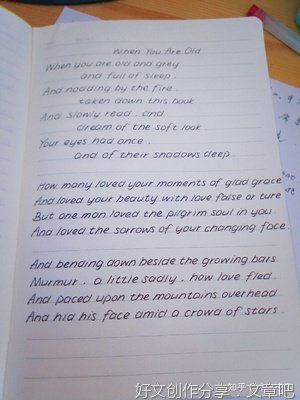 When You Are Old
When you are old and grey
and full of sleep.
And nodding by the fire.
taken down this book
And slowly read. and
dream of the soft look
Your eyes had once.
And of their shadows deep
How many loved your moments of glad grace
And loved your beauty with love false or ture
But one man loved the pilgrim soul in you
And loved the sorrows of your changing face.
And bending down beside the growing bars
Murmur. a little sadly. how love fled
And paced upon the mountains overhead
And hid his face amid a crowd of stars
知乎
好文创作分享：文章吧